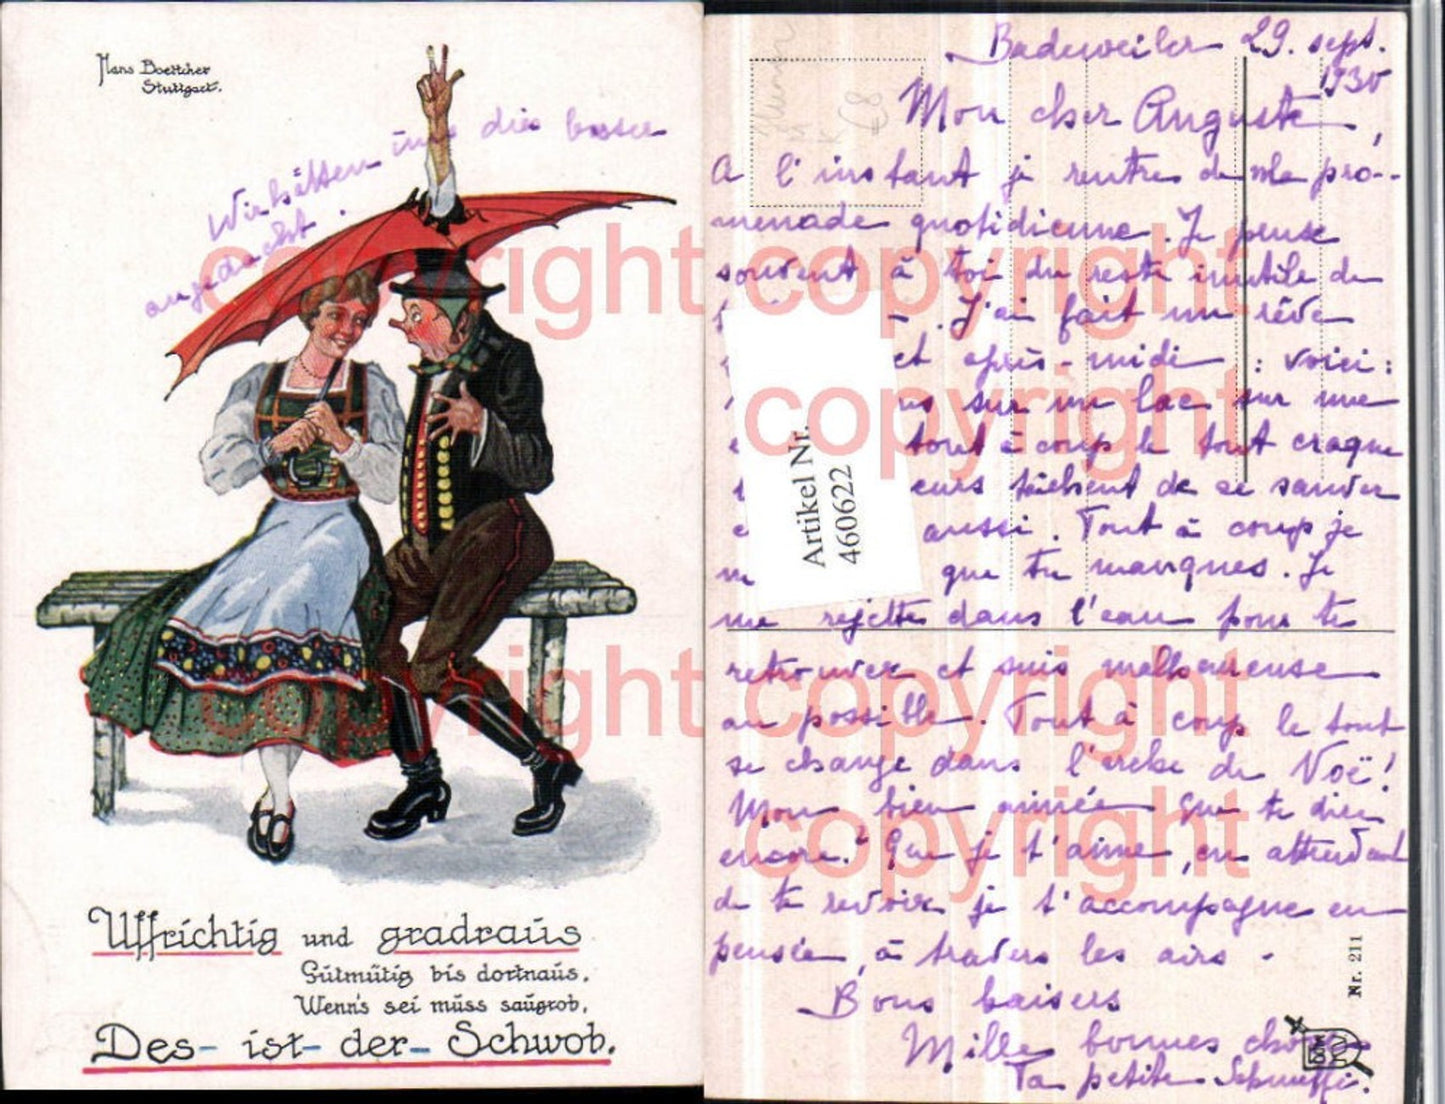 Hans Boettcher
Stuttgart.
Wir hätten uns dies besser
angedacht.
Uffrichtig und gradraus
Gütmütig bis dortnaus,
Wenn's sei müss saugrob,
Des- ist- der- Schwob.
Badenweiler 29. sept.
1930
Mon cher Auguste,
A l'instant je rentre de ma pro-
menade quotidienne. Je pense
souvent à toi du reste inutile de
. J'ai fait un rêve
cet après-midi : voici:
sur un lac sur une
tout à coup le tout craque
eurs tâchent de se sauver
aussi. Tout à coup je
que tu manques. Je
me rejette dans l'eau pour te
retrouver et suis malheureuse
au possible. Tout à coup le tout
se change dans l'arche de Noë!
Mon bien aimée que te dire
encore? Que je t'aime, en attendant
de te revoir je t'accompagne en
pensée, à travers les airs -
Bons baisers
Mille bonnes choses
Ta petite
Artikel Nr.
460622
Nr. 211
copyright copyright
copyright
copyright copyright
copyright